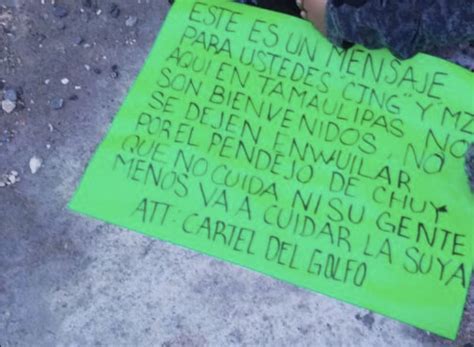 ESTE ES UN MENSAJE
PARA USTEDES CJNG Y MZ
AQUI EN TAMAULIPAS NO
SON BIENVENIDOS, NO
SE DEJEN ENWUILAR
POR EL PENDEJO DE CHUY
QUE NO CUIDA NI SU GENTE
MENOS VA A CUIDAR LA SUYA
ATT: CARTEL DEL GOLFO